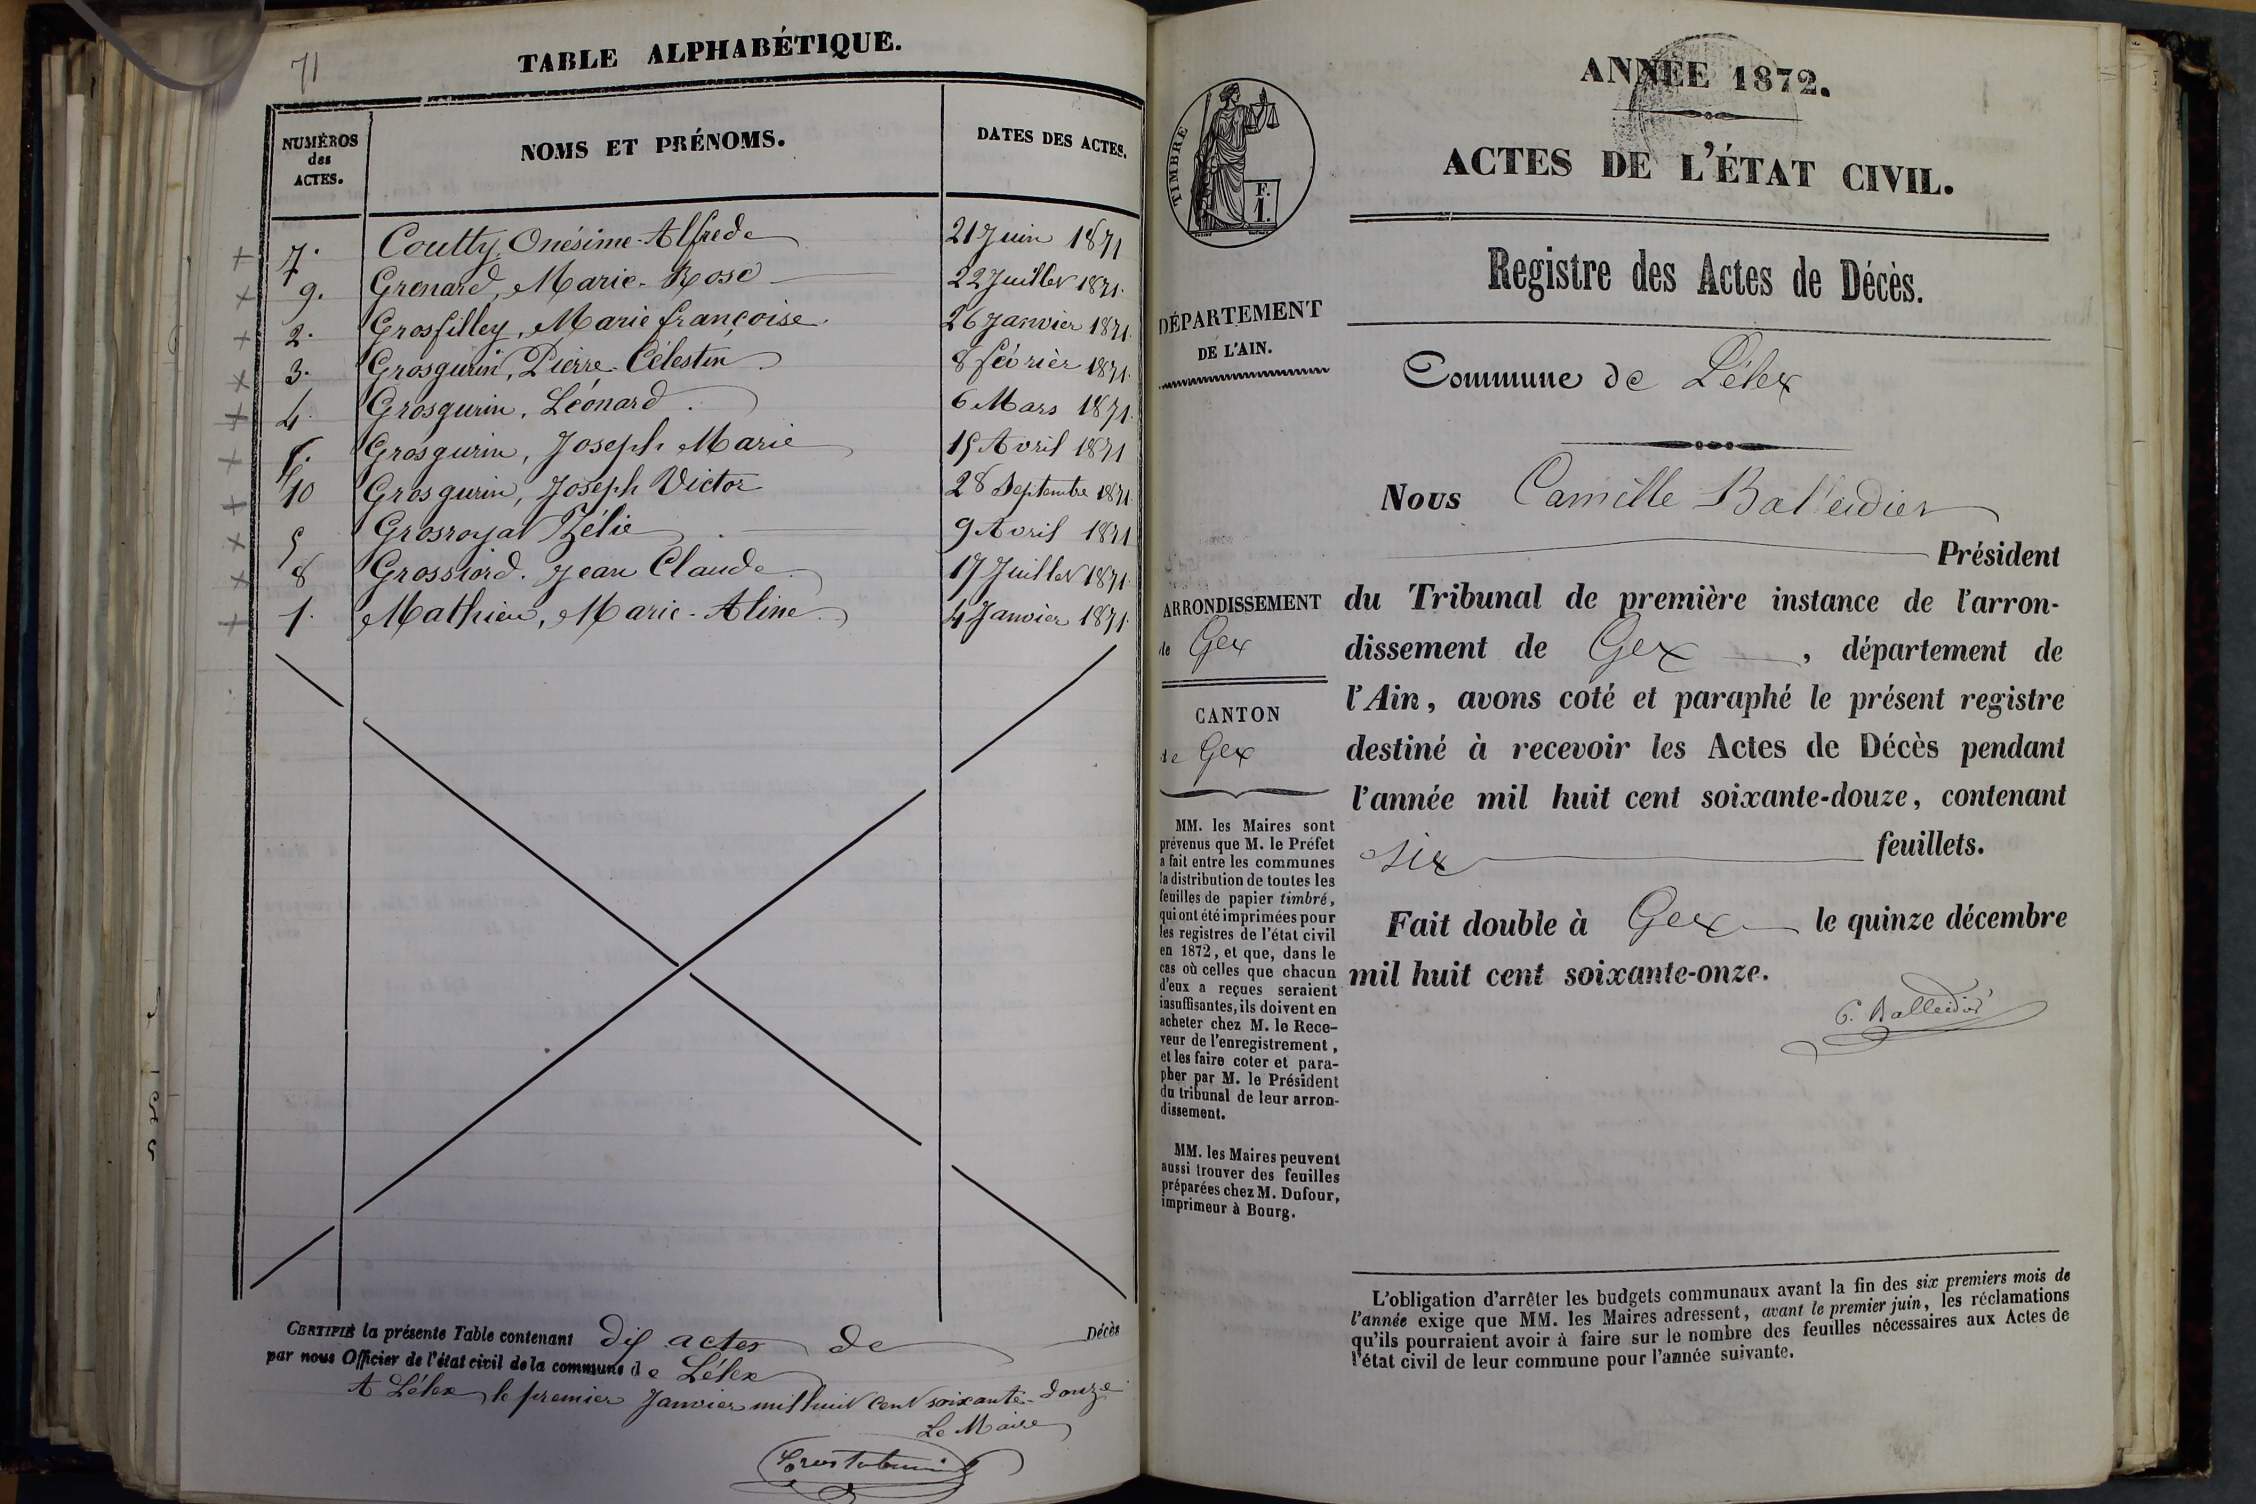 71
TABLE ALPHABÉTIQUE.
NUMÉROS
des
ACTES.
NOMS ET PRÉNOMS.
DATES DES ACTES.
7. Coutty, Onésime-Alfred 21 Juin 1871
9. Grenard, Marie-Rose 22 Juillet 1871.
2. Grosfilley, Marie françoise. 26 Janvier 1871.
3. Grosgurin, Pierre-Célestin 8 février 1871.
4. Grosgurin, Léonard. 6 Mars 1871.
6. Grosgurin, Joseph Marie 15 Avril 1871
10 Grosgurin, Joseph Victor 28 Septembre 1871.
5 Grosroyat Zélie 9 Avril 1871
8 Grossiord. Jean Claude 17 Juillet 1871.
1. Mathieu, Marie-Aline 4 Janvier 1871.
CERTIFIÉ la présente Table contenant dix actes de Décès
par nous Officier de l'état civil de la commune de Lélex
A Lélex, le premier Janvier mil huit cent soixante-douze
Le Maire
ANNÉE 1872.
ACTES DE L'ÉTAT CIVIL.
Registre des Actes de Décès.
TIMBRE
F.
I.
DÉPARTEMENT
DE L'AIN.
ARRONDISSEMENT
de Gex
CANTON
de Gex
MM. les Maires sont
prévenus que M. le Préfet
a fait entre les communes
la distribution de toutes les
feuilles de papier timbré,
qui ont été imprimées pour
les registres de l'état civil
en 1872, et que, dans le
cas où celles que chacun
d'eux a reçues seraient
insuffisantes, ils doivent en
acheter chez M. le Rece-
veur de l'enregistrement,
et les faire coter et para-
pher par M. le Président
du tribunal de leur arron-
dissement.
MM. les Maires peuvent
aussi trouver des feuilles
préparées chez M. Dufour,
imprimeur à Bourg.
Commune de Lélex
Nous Camille Balleidier
Président
du Tribunal de première instance de l'arron-
dissement de Gex, département de
l'Ain, avons coté et paraphé le présent registre
destiné à recevoir les Actes de Décès pendant
l'année mil huit cent soixante-douze, contenant
six feuillets.
Fait double à Gex le quinze décembre
mil huit cent soixante-onze.
C. Balleidier
L'obligation d'arrêter les budgets communaux avant la fin des six premiers mois de
l'année exige que MM. les Maires adressent, avant le premier juin, les réclamations
qu'ils pourraient avoir à faire sur le nombre des feuilles nécessaires aux Actes de
l'état civil de leur commune pour l'année suivante.